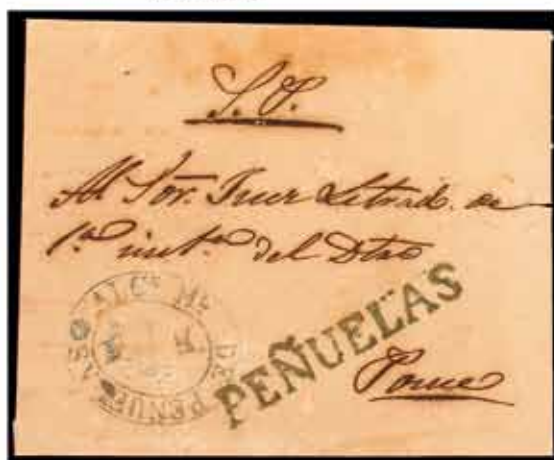 S. N.
Al Sor. Juez Letrado. de
1.a inst.a del Dtro
ALC.A M.R DE PEÑUELAS
PEÑUELAS
Ponce